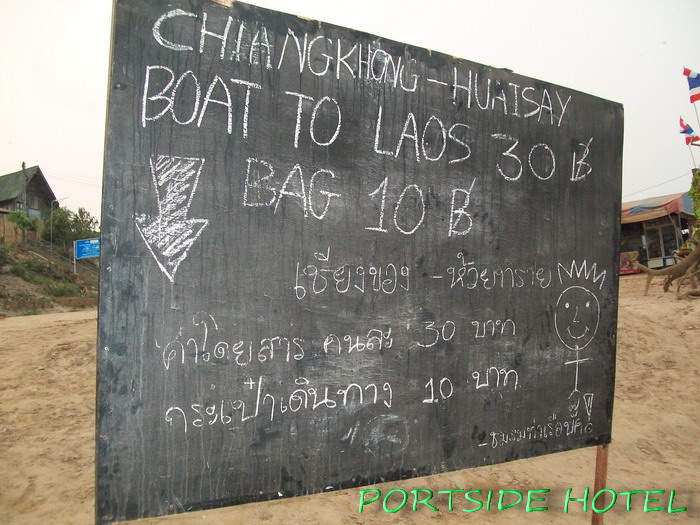 CHIANGKHONG - HUAISAY
BOAT TO LAOS 30 ฿
BAG 10 ฿
เชียงของ - ห้วยทราย
ค่าโดยสาร คนละ 30 บาท
กระเป๋าเดินทาง 10 บาท
- ชมรมท่าเรือบั๊ค
PORTSIDE HOTEL